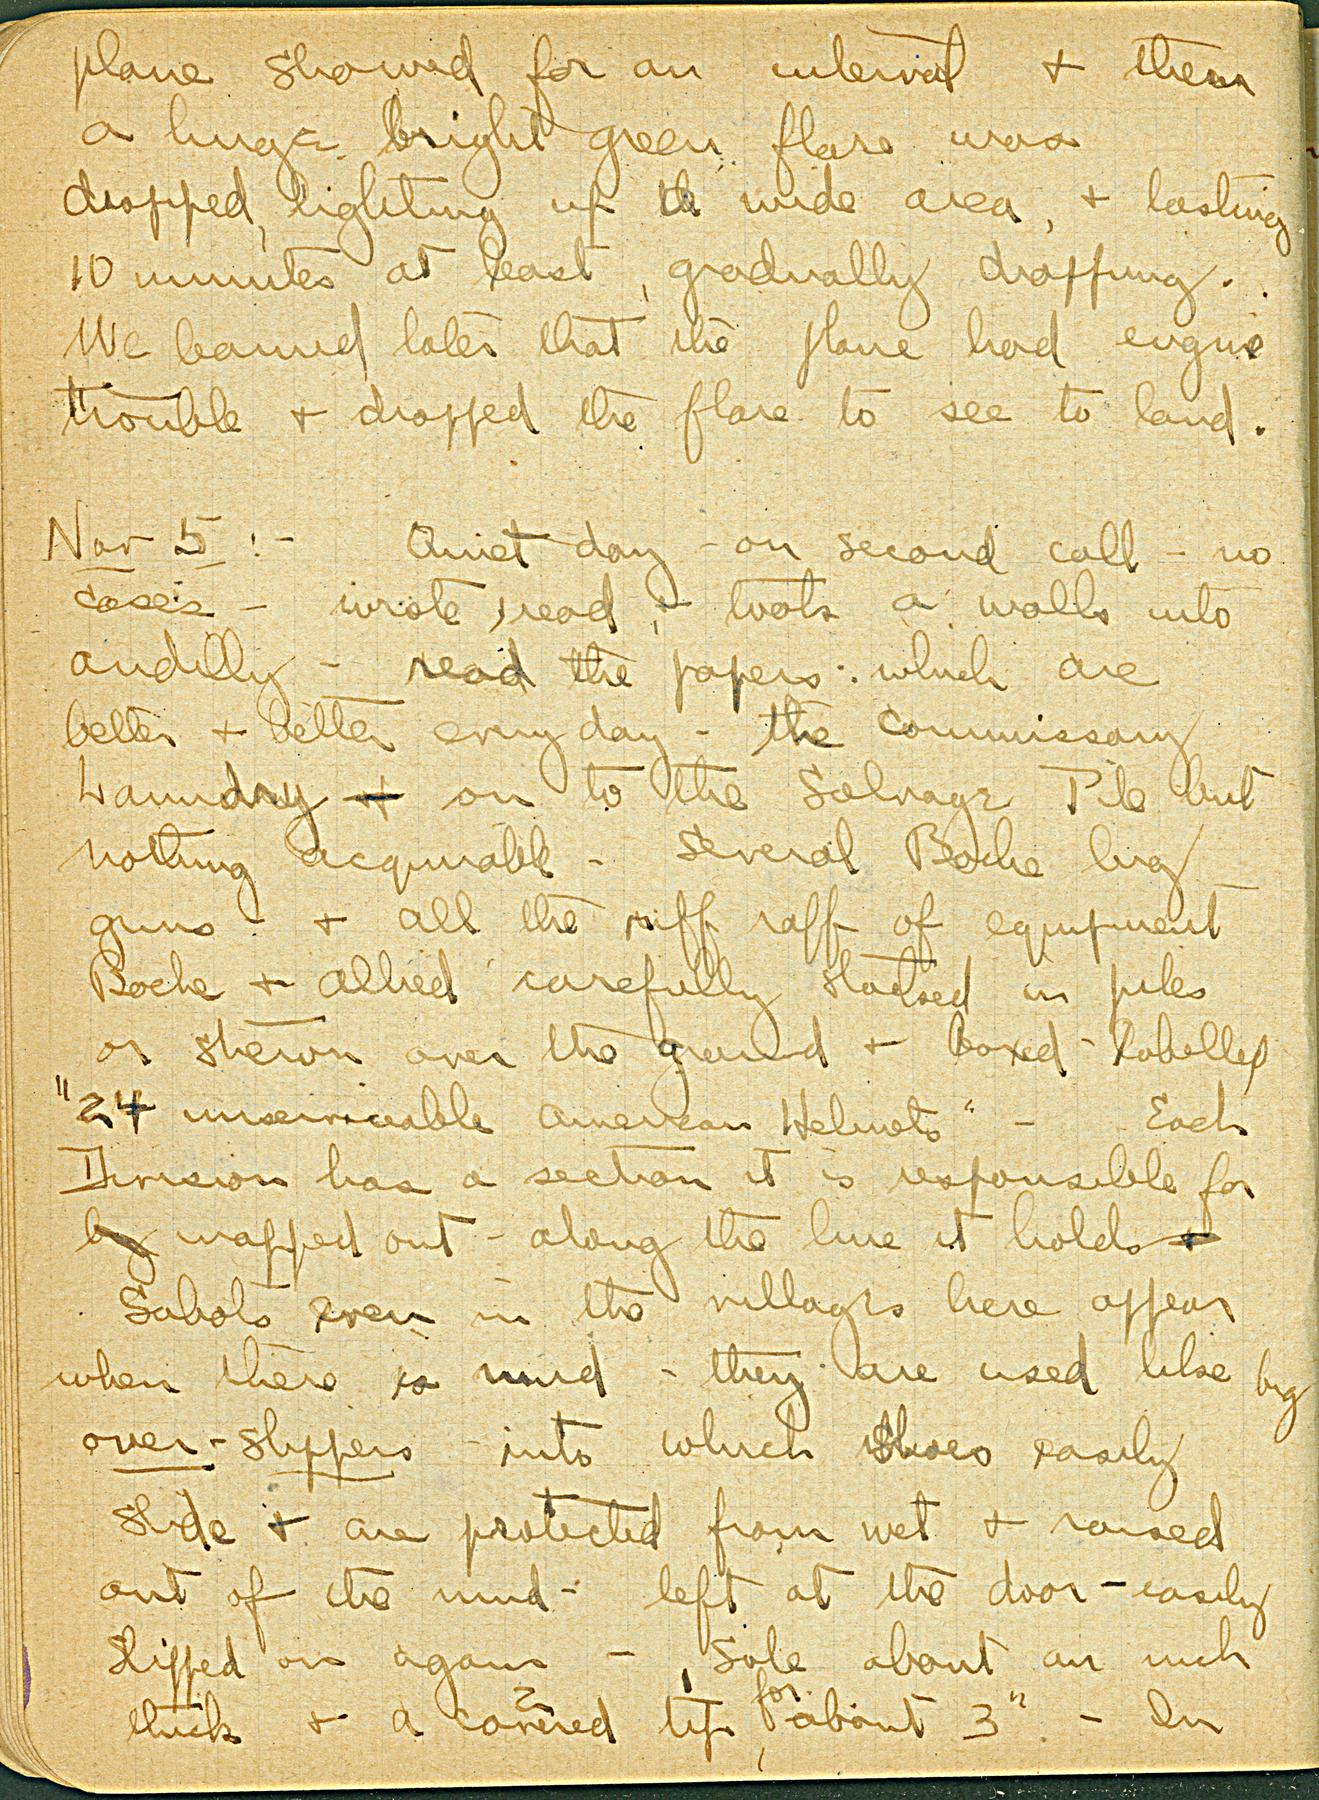 plane showed for an interval & then
a huge bright green flare was
dropped, lighting up the wide area, & lasting
10 minutes at least, gradually dropping.
We learned later that the plane had engine
trouble & dropped the flare to see to land.
Nov 5 :- Quiet day - on second call - no
cases - wrote, read, & took a walk into
andilly - read the papers: which are
better & better every day - the commissary
Laundry & on to the Salvage Pile but
nothing acquirable - Several Boche big
guns - & all the riff raff of equipment
Boche & allied carefully stacked in piles
or strewn over the ground & boxed - labelled
"24 unserviceable American Helmets" - Each
Division has a section it is responsible for
by mapped out - along the line it holds &
Sabots even in the villages here appear
when there is mud - they are used like big
over-slippers - into which shoes easily
slide & are protected from wet & raised
out of the mud - left at the door - easily
slipped on again - , Sole about an inch
thick & a covered tip for about 3" - In